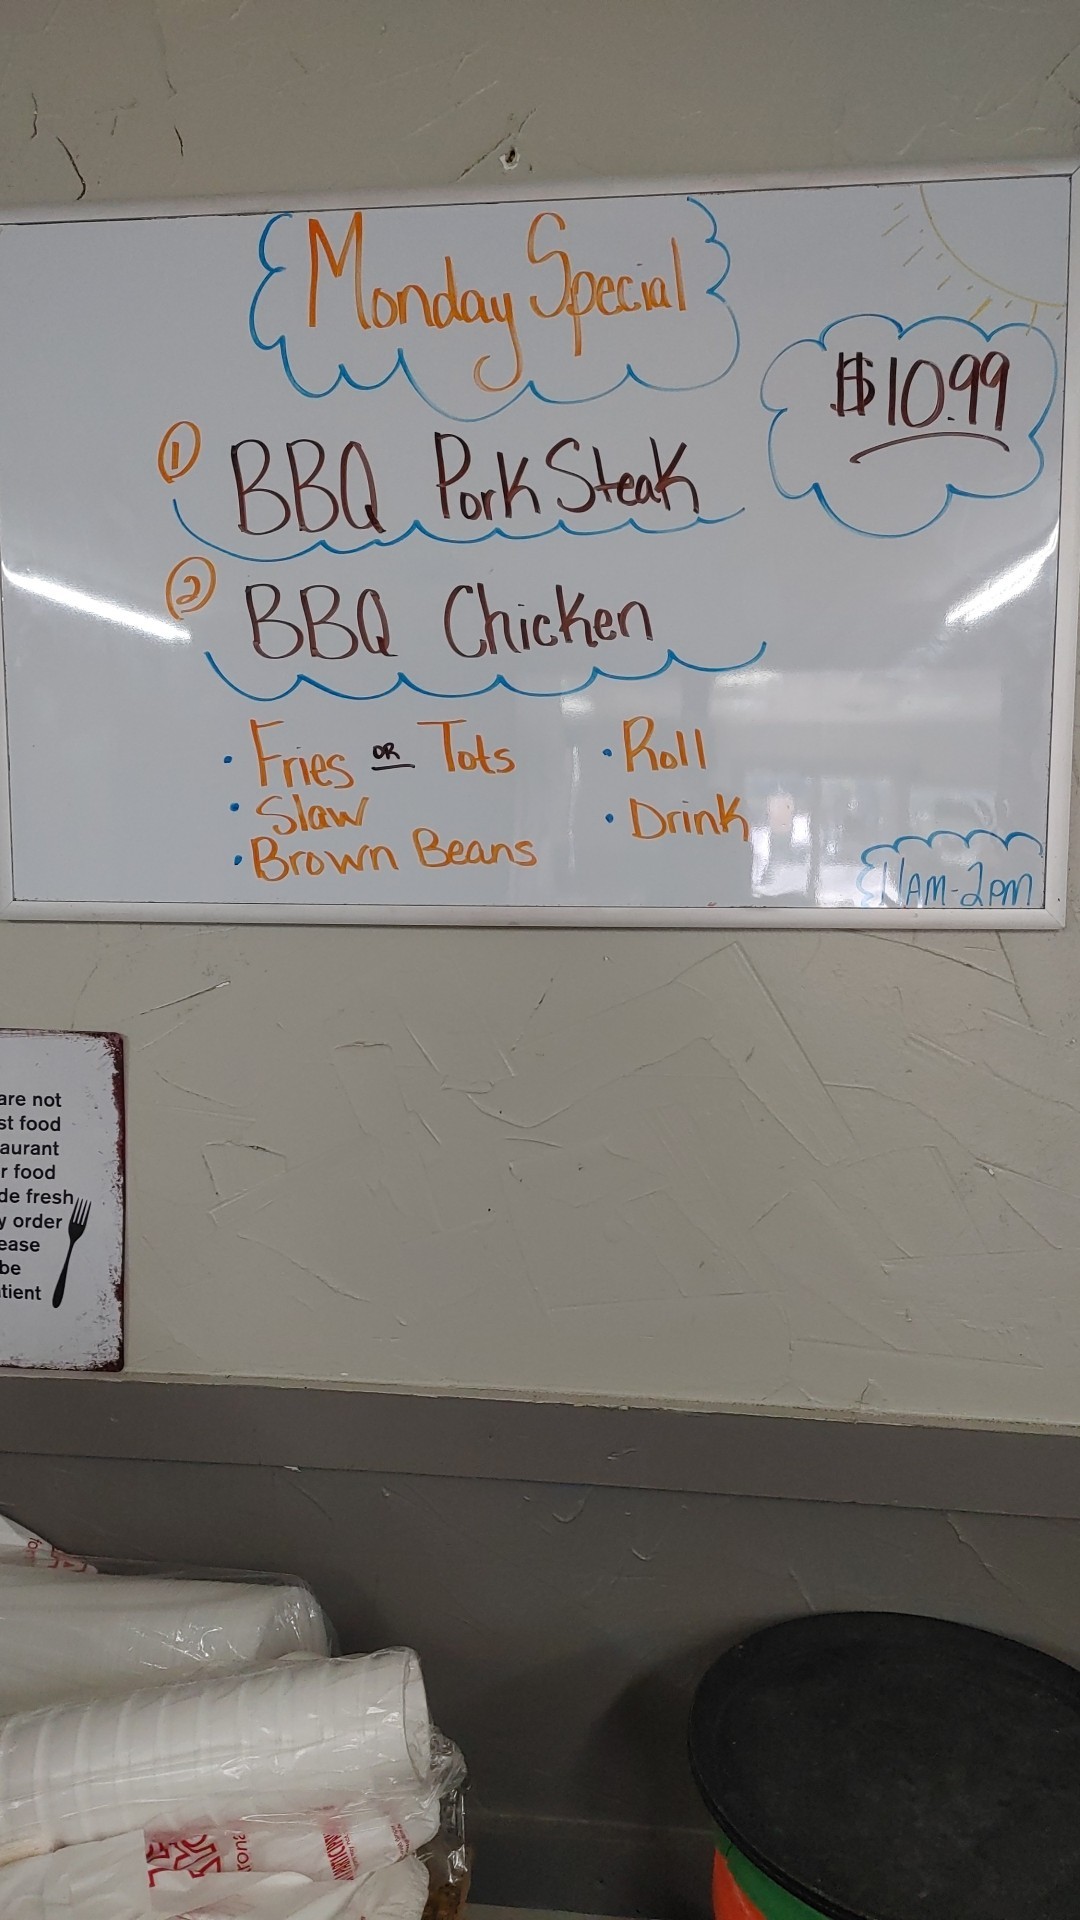 Monday Special
$10.99
1 BBQ Pork Steak
2 BBQ Chicken
• Fries OR Tots
• Slaw
• Brown Beans
• Roll
• Drink
11AM-2PM
are not
st food
aurant
r food
de fresh
y order
ease
be
tient